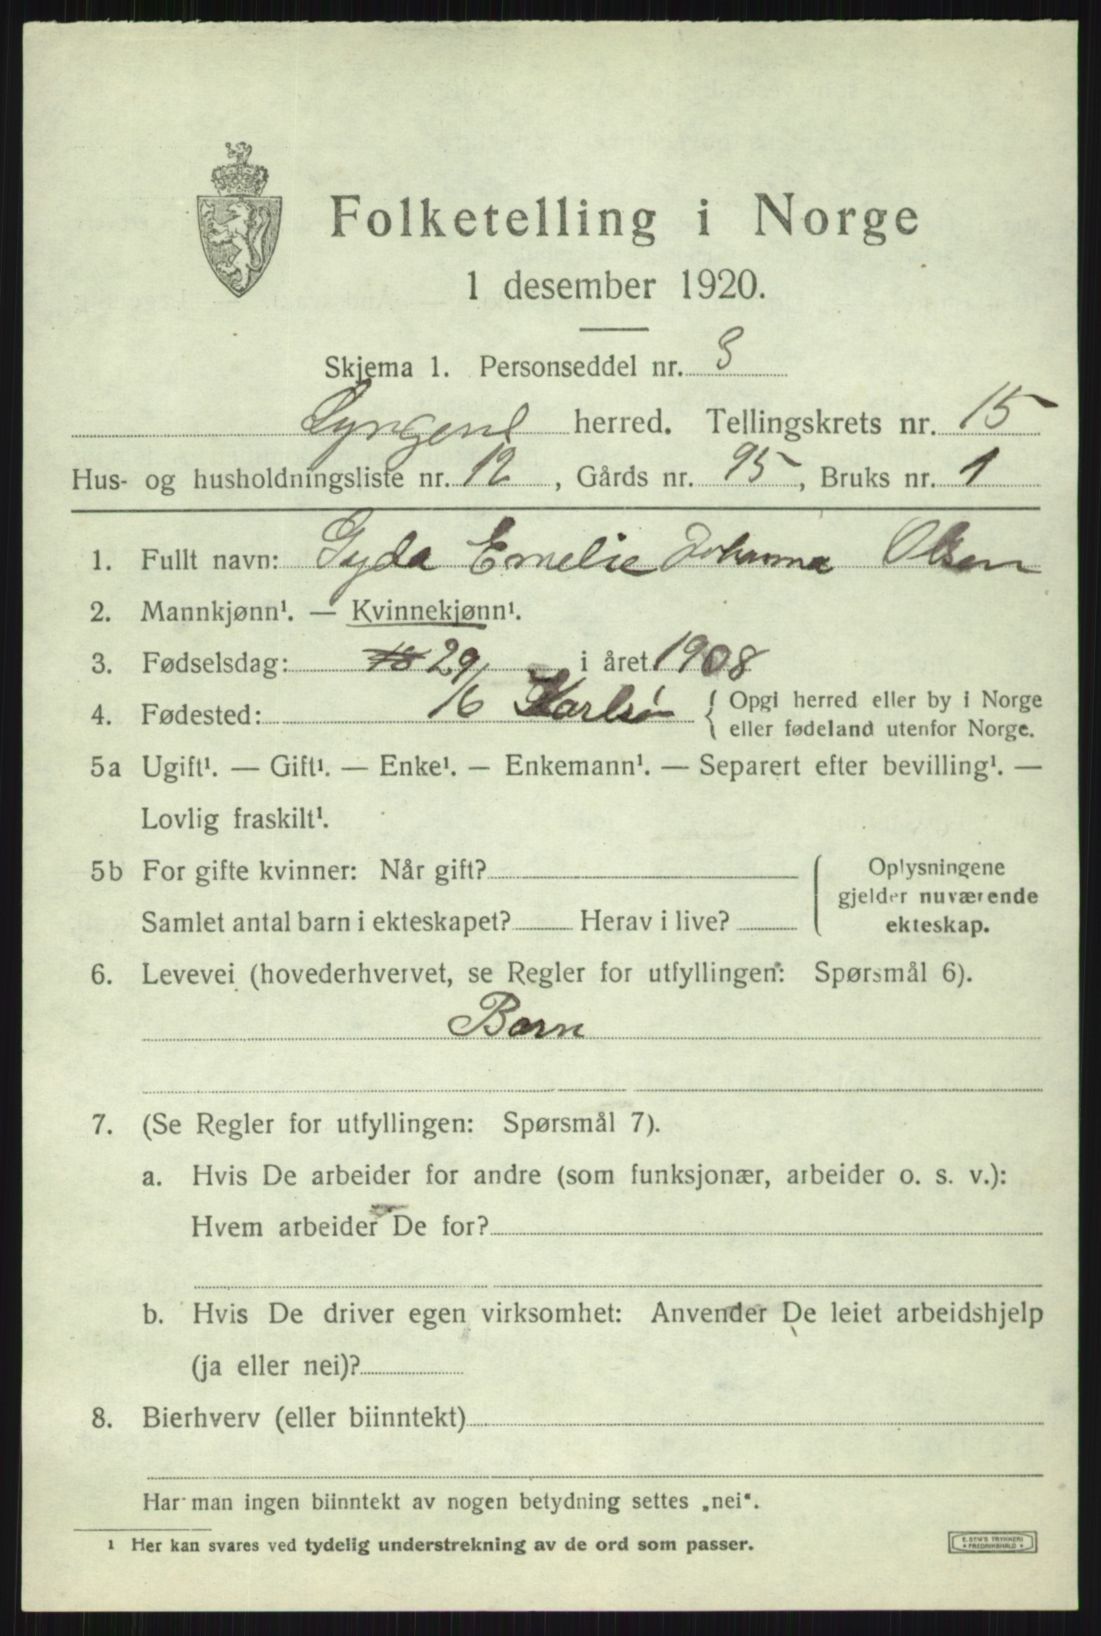 Folketelling i Norge
1 desember 1920.
Skjema 1. Personseddel nr. 3
Lyngens herred. Tellingskrets nr. 15
Hus- og husholdningsliste nr. 12, Gårds nr. 95, Bruks nr. 1
1. Fullt navn: Gyda Emelie Johanna Olsen
2. Mannkjønn¹. — Kvinnekjønn¹.
3. Fødselsdag: 18 29/6 i året 1908
4. Fødested: Karlsø { Opgi herred eller by i Norge
eller fødeland utenfor Norge.
5a Ugift¹. — Gift¹. — Enke¹. — Enkemann¹. — Separert efter bevilling¹. —
Lovlig fraskilt¹.
5b For gifte kvinner: Når gift? { Oplysningene
gjelder nuværende
Samlet antal barn i ekteskapet? Herav i live? ekteskap.
6. Levevei (hovederhvervet, se Regler for utfyllingen: Spørsmål 6).
Barn
7. (Se Regler for utfyllingen: Spørsmål 7).
a. Hvis De arbeider for andre (som funksjonær, arbeider o. s. v.):
Hvem arbeider De for?
b. Hvis De driver egen virksomhet: Anvender De leiet arbeidshjelp
(ja eller nei)?
8. Bierhverv (eller biinntekt)
Har man ingen biinntekt av nogen betydning settes „nei“.
¹ Her kan svares ved tydelig understrekning av de ord som passer.
E. SEM'S TRYKKERI
• FREDRIKSHALD •